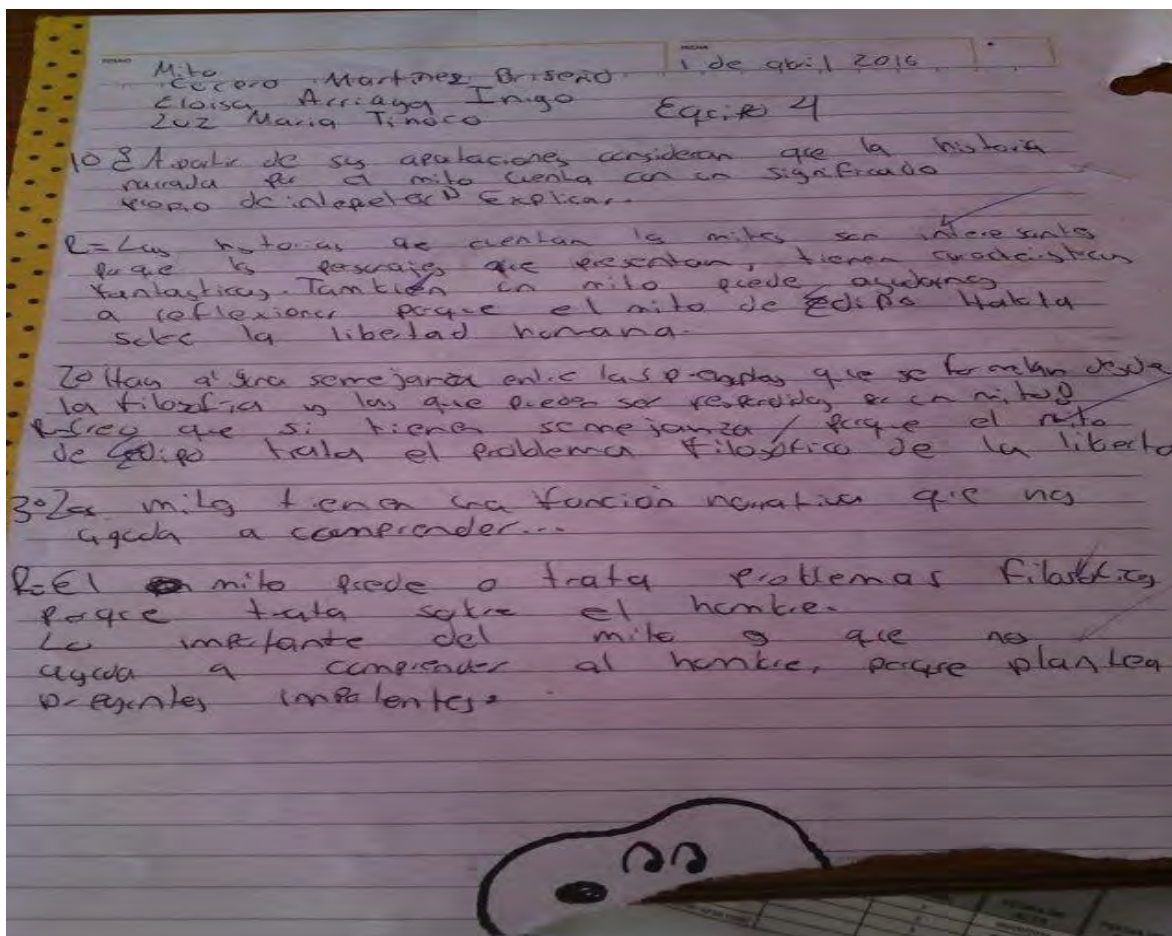 FECHA
Mito 1 de abril 2016
Cecero Martines Briseño
Eloisa Arriaga Inigo Equipo 4
Luz Maria Tinoco
1o ¿A partir de sus consideran que la historia
narrada por el mito cuenta con un significado
propio de Explicar..
R= Las historias que cuentan los mitos son interesantes
porque los personajes que presentan, tienen
fantasticas. También un mito puede ayudarnos
a reflexionar porque el mito de Edipo Habla
sobre la libertad humana.
2o Hay alguna semejanza entre las preguntas que se formulan desde
la filosofia y las que pueden ser respondidas por un mito?
R= Creo que si tienen semejanza, porque el mito
de Edipo trata el problema filosofico de la liberta
3o Los mitos tienen una función narrativa que nos
ayuda a comprender...
R= El mito puede o trata problemas filosoficos
porque trata sobre el hombre.
Lo importante del mito es que nos
ayuda a comprender al hombre, porque plantea
preguntas